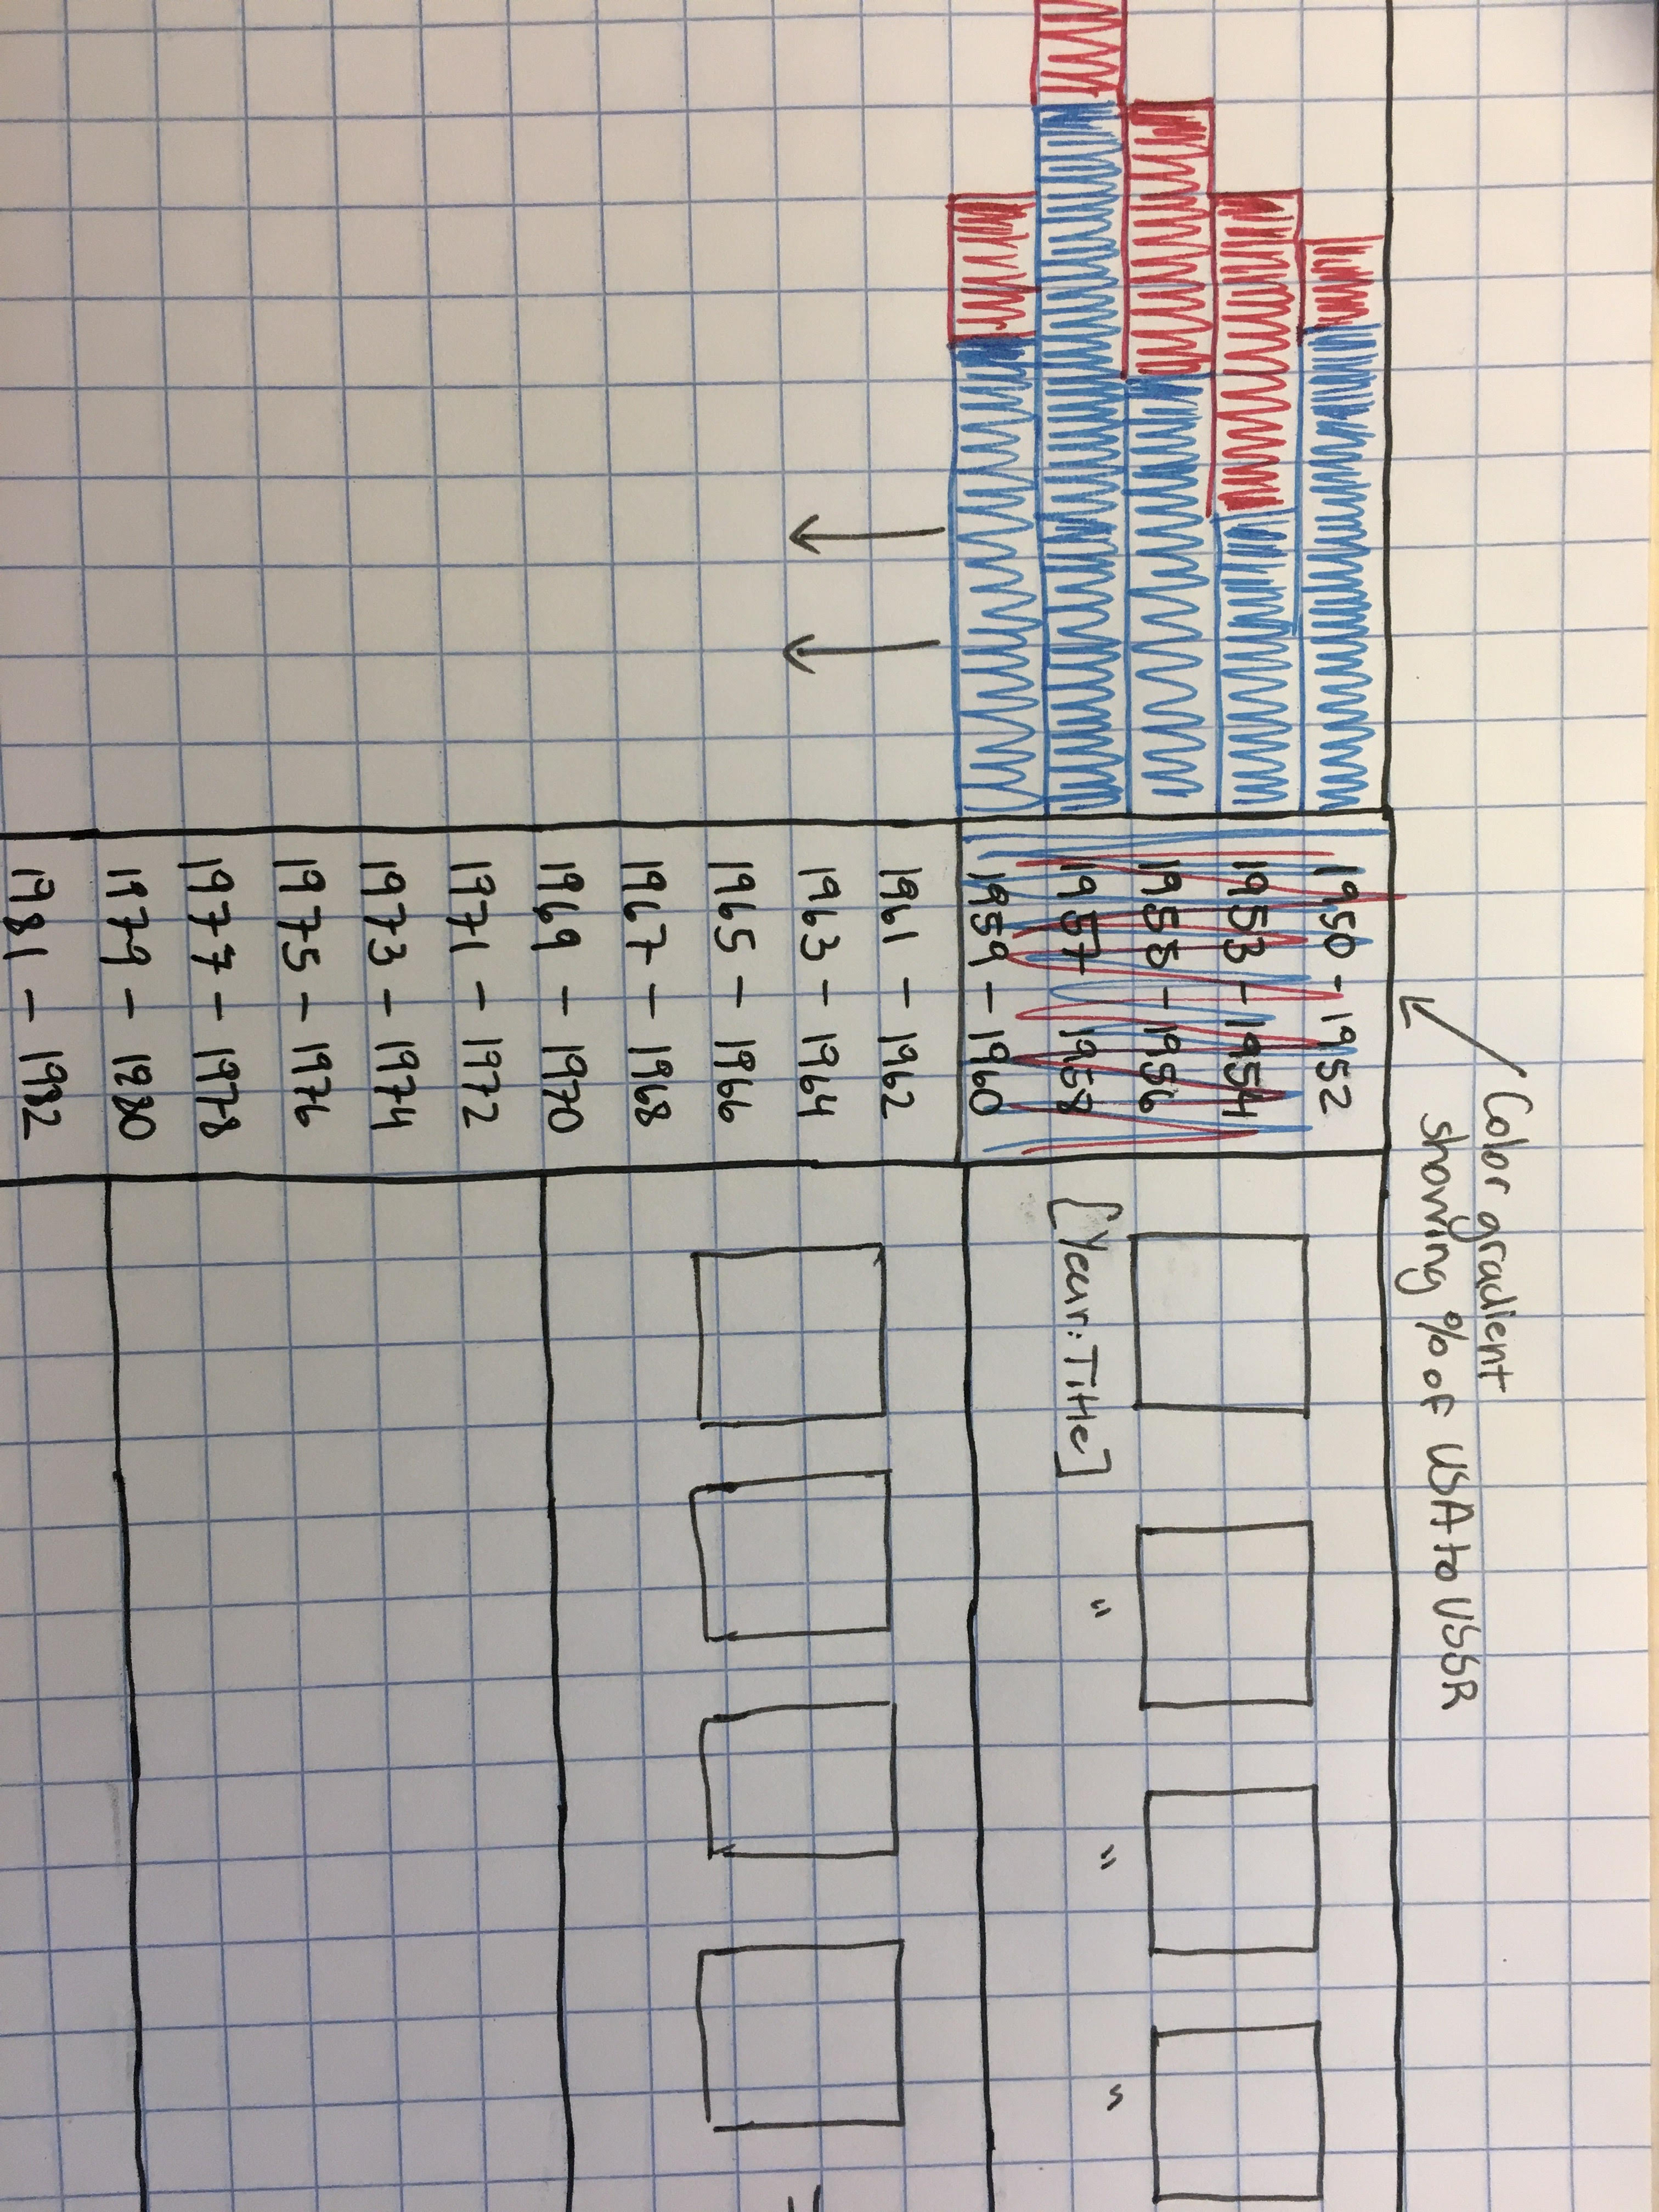 Color gradient
showing % of USA to USSR
1950 - 1952
1953 - 1954
1955 - 1956
1957 - 1958
1959 - 1960
1961 - 1962
1963 - 1964
1965 - 1966
1967 - 1968
1969 - 1970
1971 - 1972
1973 - 1974
1975 - 1976
1977 - 1978
1979 - 1980
1981 - 1982
[Year: Title]
" " "